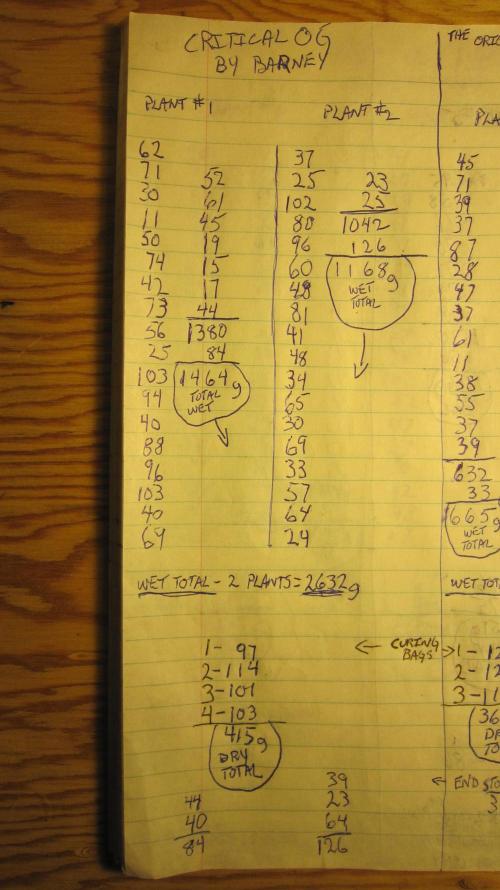 CRITICAL OG
BY BARNEY
PLANT #1
62
71
30
11
50
74
42
73
56
25
103
94
40
88
96
103
40
69
52
61
45
19
15
17
44
1380
84
1464g
TOTAL
WET
PLANT #2
37
25
102
80
96
60
48
81
41
48
34
65
30
69
33
57
64
24
23
25
1042
126
1168g
WET
TOTAL
WET TOTAL - 2 PLANTS = 2632g
1- 97
2- 114
3- 101
4- 103
415g
DRY
TOTAL
44
40
84
39
23
64
126
← CURING →
BAGS
← END STO
THE ORIG
PLA
45
71
39
37
87
28
47
37
61
11
38
55
37
39
632
33
665g
WET
TOTAL
WET TOT
1- 12
2- 12
3- 11
36
DR
TO
3